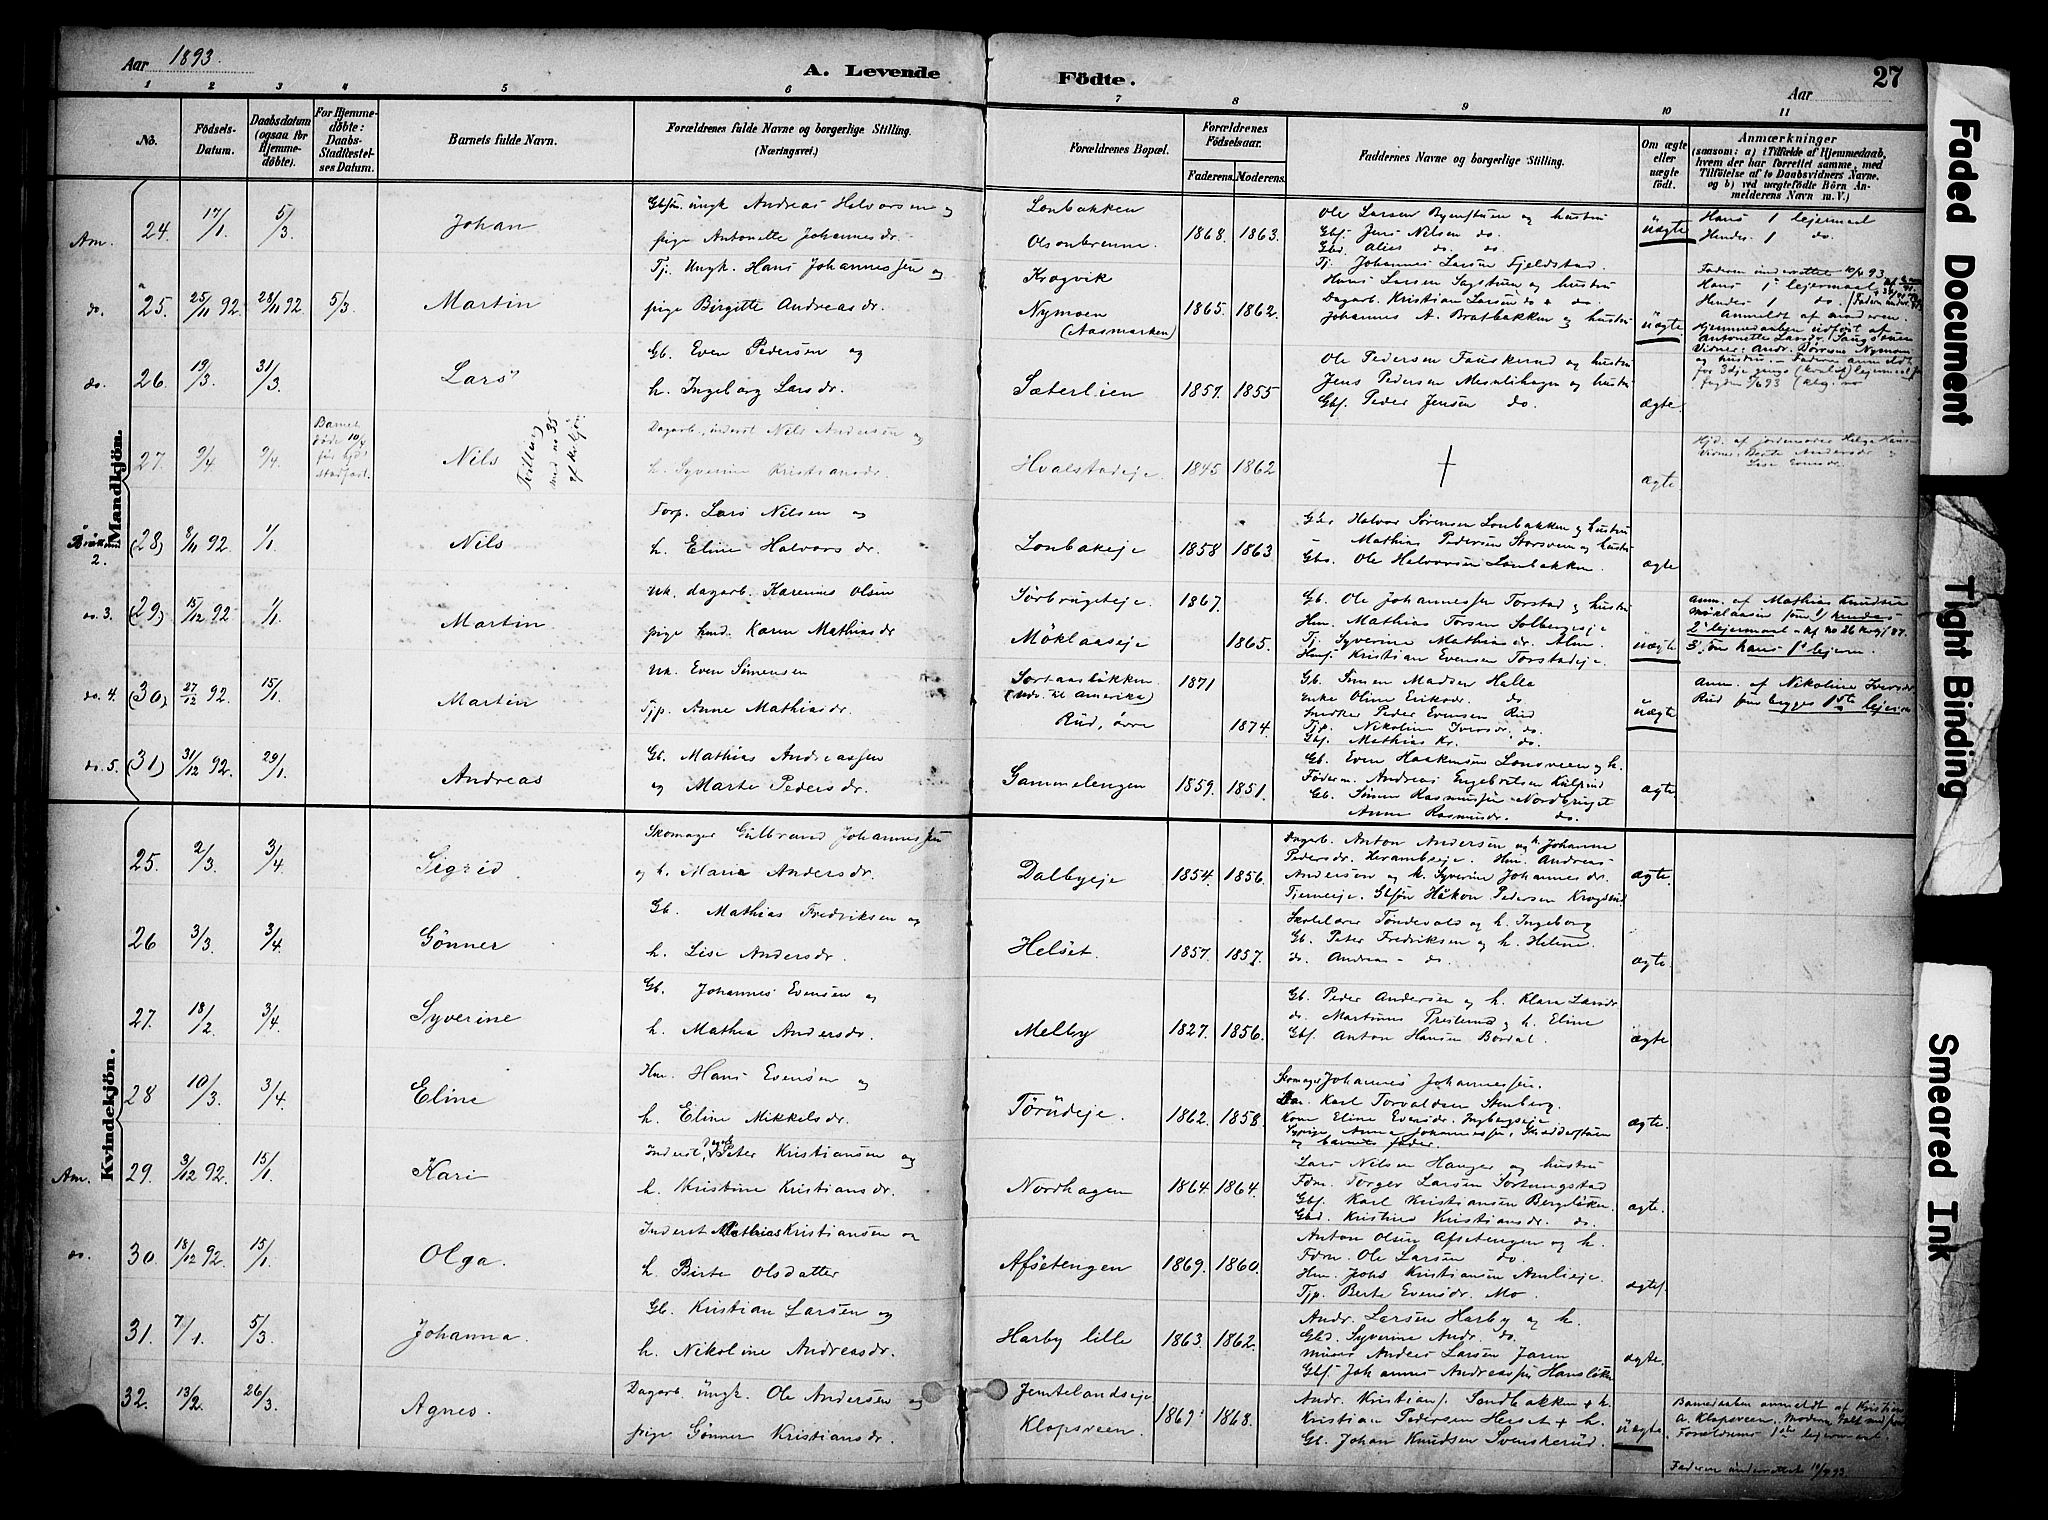 Aar 1893.
A. Levende Födte.
27
Aar
1 2 3 4 5 6 7 8 9 10 11
No.
Födsels-Datum.
Daabsdatum (ogsaa for Hjemme-döbte).
For Hjemme-döbte: Daabs-Stadfæstel-ses Datum.
Barnets fulde Navn.
Forældrenes fulde Navne og borgerlige Stilling. (Næringsvei.)
Forældrenes Bopæl.
Forældrenes Födselsaar.
Faderens. Moderens.
Faddernes Navne og borgerlige Stilling.
Om ægte eller uægte födt.
Anmærkninger
(saasom: a) i Tilfælde af Hjemmedaab, hvem der har forrettet samme, med Tilföielse af to Daabsvidners Navne. og b) ved uægtefödte Börn Anmelderens Navn m. V.)
Mandkjön.
Am. 24. 17/1. 5/3. Johan
Gbsön. üngk Andreas Halvorsen og
pige Antonette Johannesdr.
Lonbakken
Olsonbrenne.
1868. 1863.
Ole Larsen Bymstuen og hustru
Gbf. Jens Nilsen do.
Gbd. Alies do. do.
Tj. Johannes Larsen Fjeldstad.
üægte
Hans 1 lejermaal
Hendes 1 do.
do. 25. 25/11 92. 28/11 92 5/3 Martin
Tj. Ungk. Hans Johannessen og
pige Birgitte Andreasdr.
Krogvik
Nymoen
(Aasmarken)
1865. 1862.
Hans Larsen Sagstuen og hustru
Dagarb. Kristian Larsen do & do.
Johannes A. Bratbakken og hustru
üægte
Faderen underrettet 10/4 93.
Hans 1ste lejermaal
Hendes 1 do.
Anmeldt af moderen.
Hjemmedaaben udført af
Antonette Larsdr.
do. 26. 19/3. 31/3. Lars
Gb. Even Pedersen og
h. Ingeborg Larsdr.
Sæterlien
1857. 1855
Ole Pedersen Fauskerud og hustru
Jens Pedersen Mesnlihagen og hustru
Gbf. Peder Jensen do.
ægte.
27. 9/4 9/4. Barnet døde 10/4 før hjd. stadfæst. Nils
Tvilling med no 35 af kvkjön.
Dagarb., inderst Nils Andersen og
h. Syverine Kristiansdr.
Hvalstadeje.
1845 1862
ægte
Hjd. af jordemoder Helga Hans
Vidner: Berte Andersdr og
Lise Evensdr.
2. (28) 8/11 92. 1/1. Nils
Torp. Lars Nilsen og
h. Eline Halvorsdr.
Lonbakeje
1858 1863
Gbr Halvor Sørensen Lonbakken og hustru
Mathias Pedersen Storsveen og hustru
Gbs. Ole Halvorsen Lonbakken.
ægte
do. 3. (29) 15/12 92 1/1. Martin
Uk. dagarb. Karennes Olsen
pige Karen Mathiasdr
Sörbrugeteje. 1867.
Möklaaseje 1865.
Gb. Ole Johannessen Torstad og hustru
Hm. Mathias Torsen Solbergeje
Tj. Syverine Mathiasdr. Alm.
Husf. Kristian Evensen Torstadeje.
üægte
Anm. af Mathias Knudsen
Möklaasen
do. 4 (30) 27/12 92. 15/1 Martin
Uk. Even Simensen
Tjp. Anne Mathiasdr.
Sortaasbakken. 1871
(udv. til Amerika)
Rud, övre 1874.
Gb. Simen Madsen Halla
Enke Oline Eriksdr. do
Snedker Peder Evensen Rud
Tjp. Nikoline Iversdr. do.
Gbf. Mathias Kr. do.
üægte
Anm. af Nikoline Iversdr.
Rud for begges 1ste lejerm.
do. 5. (31) 31/12 92. 29/1. Andreas
Gb. Mathias Andreassen
og Marte Pedersdr.
Gammelengen
1859. 1851.
Gb. Even Haakensen Lonsveen og h.
Föderm. Andreas Engebretsen Külsrud
Gb. Simen Rasmussen Nordbruget
Anne Rasmusdr. do.
ægte.
Kvindekjön.
25. 2/3. 3/4 Sigrid
Skomager Gulbrand Johannessen
og h. Maria Andersdr.
Dalbyeje
1854. 1856.
Dagarb. Anton Andersen og h. Johanne
Pedersdr. Herambseje. Hm. Andreas
Anderson og k. Syverine Johannesdr.
Tjerneeje. Gbsön Håkon Pedersen
ægte.
26 3/3. 3/4. Gönner
Gb. Mathias Fredriksen og
h. Lise Andersdr.
Helset.
1857. 1857.
Skolelærer Töndevold og h. Ingeborg
Gb. Peter Fredriksen og h. Helene.
do. Andreas - do.
ægte.
27. 18/2. 3/4. Syverine
Gb. Johannes Evensen og
h. Mathea Andersdr.
Melby
1827. 1856.
Gb. Peder Andersen og h. Klara Larsdr
do. Martinus Preslerud og h. Eline
Gbf. Anton Hansen Bordal.
ægte
28 10/3. 3/4. Eline
Hm. Hans Evensen og
h. Eline Mikkelsdr.
Törüdeje.
1862. 1858.
Skomager Johannes Johannessen.
Karl Torvaldsen Stenberg.
Kone Eline Evensdr. Ingbergseje
Sypige Anna Johannessen, Skrædderstuen
og barnets fader.
ægte.
Am. 29. 3/12 92. 15/1. Kari
Inderst, Dagarb Peter Kristiansen og
h. Kristine Kristiansdr.
Nordhagen
1864. 1864.
Lars Nilsen Hanger og hustru
Fdm. Torger Larsen Sortungstad
Gbf. Karl Kristiansen Bergeløkken
Gbd. Kristine Kristiansdr. do.
ægte.
do. 30. 18/12 92. 15/1. Olga.
Inderst Mathias Kristiansen og
h. Birte Olsdatter
Afsetengen
1869. 1860.
Anton Olsen Afsetengen og h.
Fdm. Ole Larsen do
Hm. Johs Kristiansen Amlieje.
Tjp. Berte Evensdr. Mo.
ægte.
31. 7/1. 5/3. Johanna.
Gb. Kristian Larsen og
h. Nikoline Andreasdr.
Harby lille
1863. 1862.
Andr. Larsen Harby og h.
Gbd. Syverine Andr. do.
Murer Anders Larsen Jaren
Gbf. Johannes Andreassen Hansløkken
ægte.
32. 13/2. 26/3. Agnes.
Dagarb. üngk. Ole Andersen og
pige Gönner Kristiansdr.
Jemtelandseje
Klopsveen.
1869. 1868.
Andr. Kristians. Sandbakken + h.
Kristian Pedersen Herset + h.
Gb. Johan Knudsen Svenskerüd.
üægte.
Barnedaaben anmeldt af Kristian
A. Klopsveen.
Forældrenes 1ste lejermaal.
Faderen ünderrettet 19/4 93.
Faded Document
Tight Binding
Smeared Ink